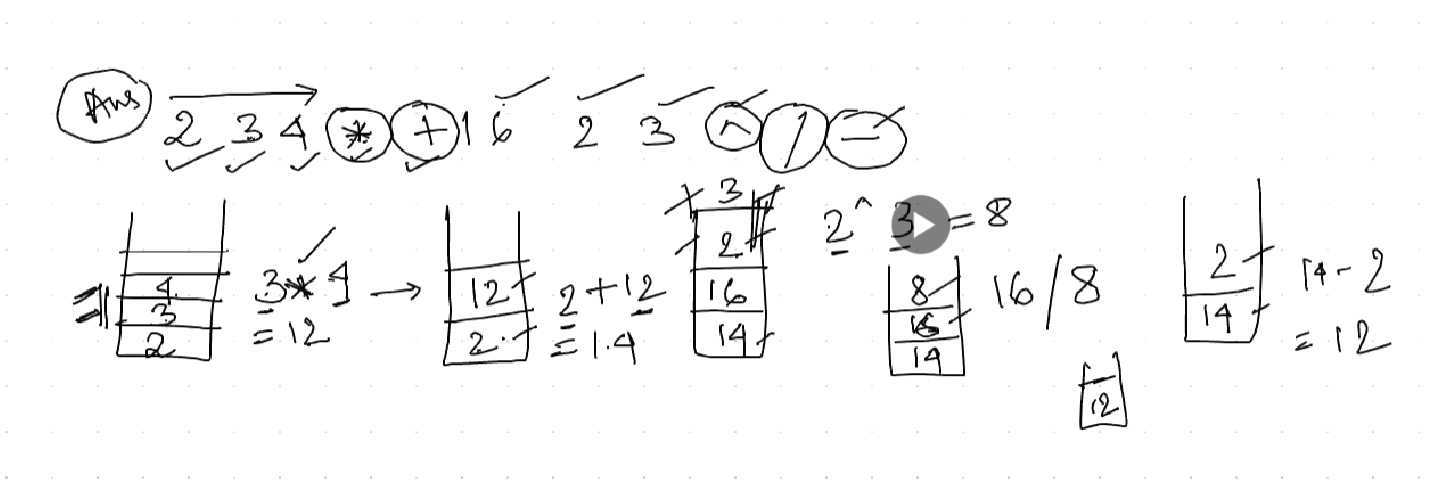 Ans 2 3 4 * + 16 2 3 ^ / -
4
3
2
3*4
=12
12
2
2+12
=14
3
2
16
14
2^3=8
8
16
14
16/8
2
14
14-2
=12
12